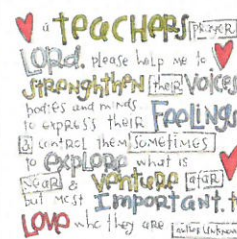 a teachers prayer
LORD, please help me to
strenghthen their voices
bodies and minds
to express their Feelings
& control them sometimes
to explore what is
near & venture afar
but most Important t
LOVE who they are author unknown